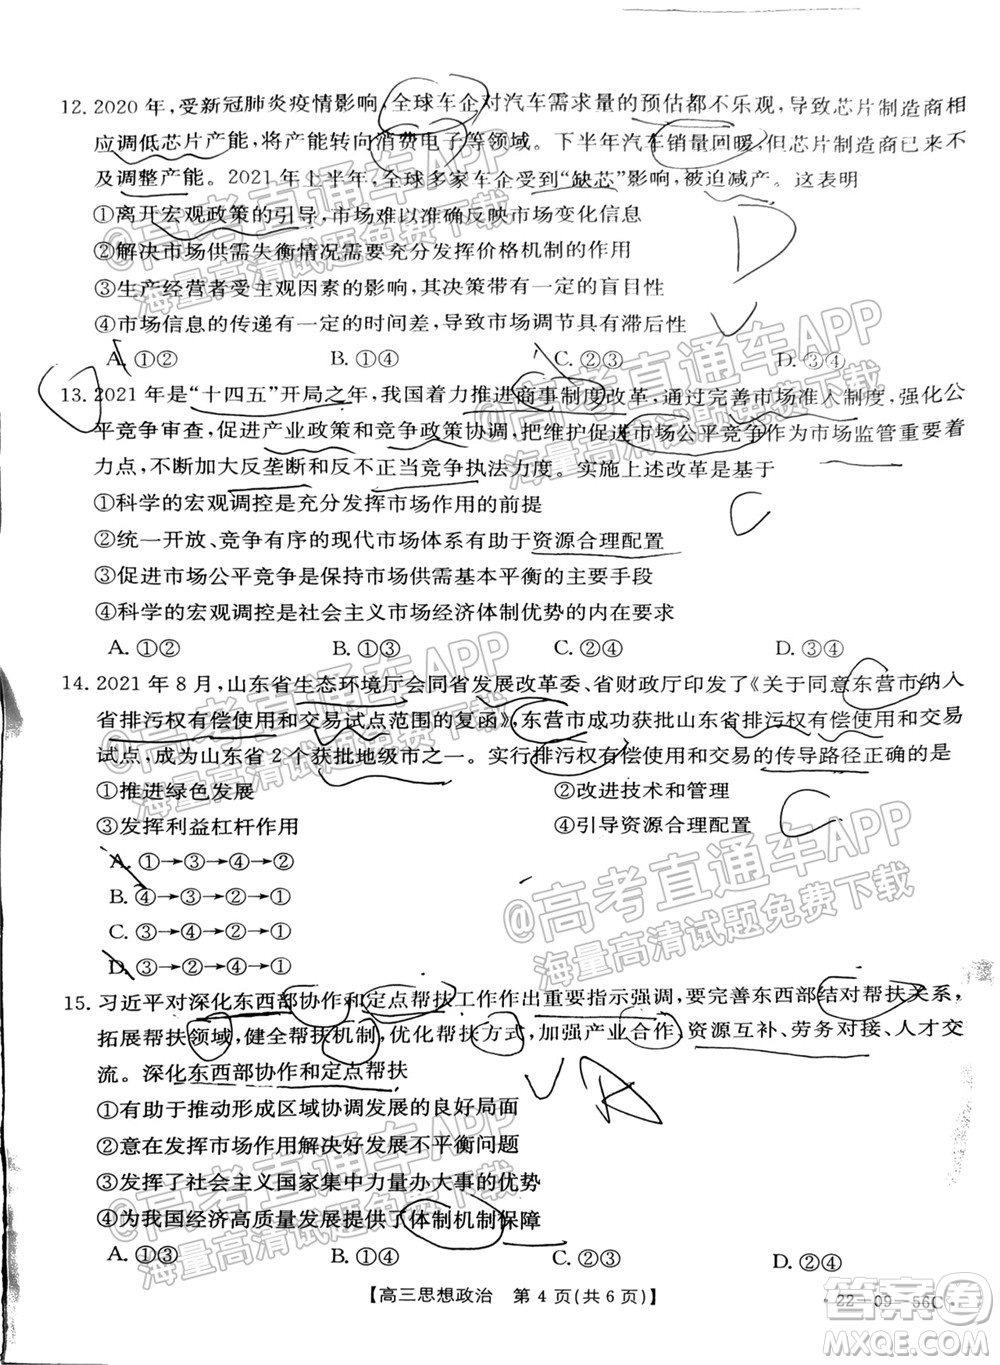 12. 2020 年，受新冠肺炎疫情影响，全球车企对汽车需求量的预估都不乐观，导致芯片制造商相
应调低芯片产能，将产能转向消费电子等领域。下半年汽车销量回暖，但芯片制造商已来不
及调整产能。2021 年上半年，全球多家车企受到“缺芯”影响，被迫减产。这表明
①离开宏观政策的引导，市场难以准确反映市场变化信息
②解决市场供需失衡情况需要充分发挥价格机制的作用
③生产经营者受主观因素的影响，其决策带有一定的盲目性
④市场信息的传递有一定的时间差，导致市场调节具有滞后性
A. ①② B. ①④ C. ②③ D. ③④
D
13. 2021 年是“十四五”开局之年，我国着力推进商事制度改革，通过完善市场准入制度，强化公
平竞争审查，促进产业政策和竞争政策协调，把维护促进市场公平竞争作为市场监管重要着
力点，不断加大反垄断和反不正当竞争执法力度。实施上述改革是基于
①科学的宏观调控是充分发挥市场作用的前提
②统一开放、竞争有序的现代市场体系有助于资源合理配置
③促进市场公平竞争是保持市场供需基本平衡的主要手段
④科学的宏观调控是社会主义市场经济体制优势的内在要求
A. ①② B. ①③ C. ②④ D. ③④
C
14. 2021 年 8 月，山东省生态环境厅会同省发展改革委、省财政厅印发了《关于同意东营市纳入
省排污权有偿使用和交易试点范围的复函》，东营市成功获批山东省排污权有偿使用和交易
试点，成为山东省 2 个获批地级市之一。实行排污权有偿使用和交易的传导路径正确的是
①推进绿色发展 ②改进技术和管理
③发挥利益杠杆作用 ④引导资源合理配置
A. ①→③→④→②
B. ④→③→②→①
C. ③→④→②→①
D. ③→②→④→①
C
15. 习近平对深化东西部协作和定点帮扶工作作出重要指示强调，要完善东西部结对帮扶关系，
拓展帮扶领域，健全帮扶机制，优化帮扶方式，加强产业合作、资源互补、劳务对接、人才交
流。深化东西部协作和定点帮扶
①有助于推动形成区域协调发展的良好局面
②意在发挥市场作用解决好发展不平衡问题
③发挥了社会主义国家集中力量办大事的优势
④为我国经济高质量发展提供了体制机制保障
A. ①③ B. ①④ C. ②③ D. ②④
【高三思想政治 第 4 页(共 6 页)】
·22-09-56C·
@高考直通车APP
海量高清试题免费下载
@高考直通车APP
海量高清试题免费下载
@高考直通车APP
海量高清试题免费下载
@高考直通车APP
海量高清试题免费下载
@高考直通车APP
海量高清试题免费下载
答案圈
MXQE.COM